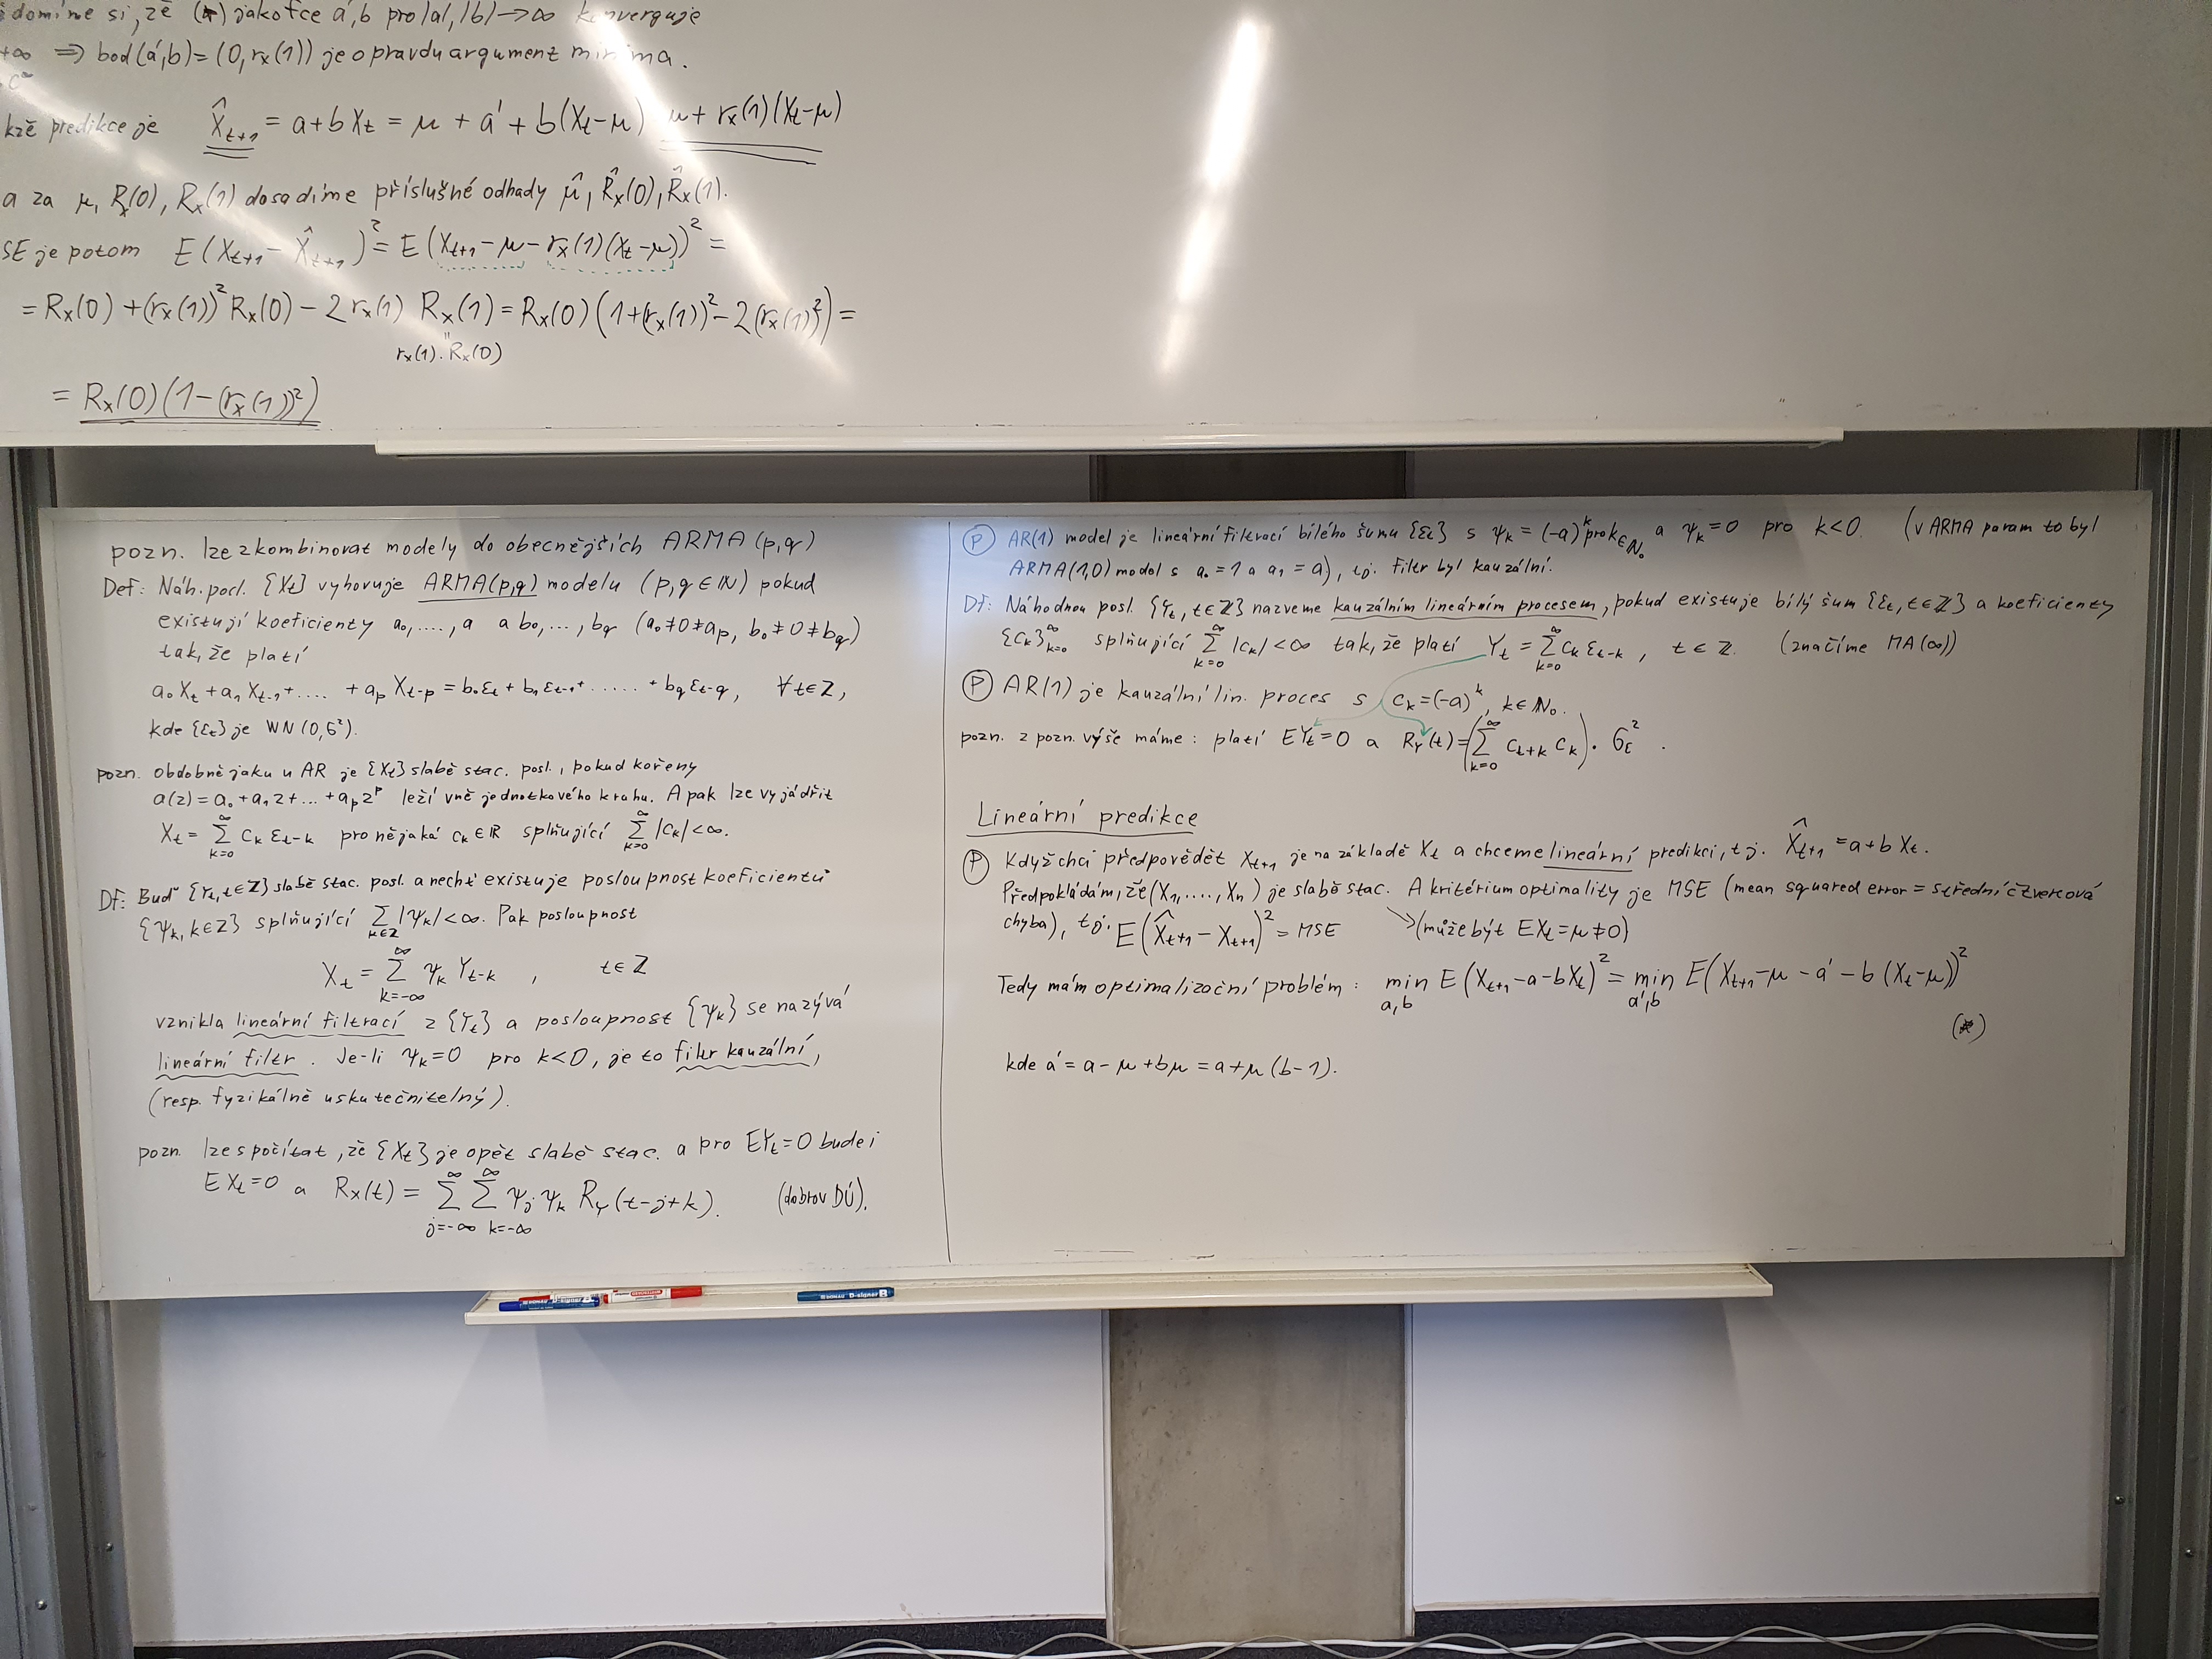 domíme si, že (*) jako fce a', b pro |a|, |b| → ∞ konverguje
+∞ ⇒ bod (a', b) = (0, rₓ(1)) je opravdu argument minima.
kže predikce je X̂ₜ₊₁ = a + b Xₜ = μ + a' + b(Xₜ - μ) μ + rₓ(1)(Xₜ - μ)
a za μ, Rₓ(0), Rₓ(1) dosadíme příslušné odhady μ̂, R̂ₓ(0), R̂ₓ(1).
SE je potom E(Xₜ₊₁ - X̂ₜ₊₁)² = E(Xₜ₊₁ - μ - rₓ(1)(Xₜ - μ))² =
= Rₓ(0) + (rₓ(1))² Rₓ(0) - 2 rₓ(1) Rₓ(1) = Rₓ(0)(1 + (rₓ(1))² - 2(rₓ(1))²) =
rₓ(1) · Rₓ(0)
= Rₓ(0)(1 - (rₓ(1))²)
pozn. lze zkombinovat modely do obecnějších ARMA(p,q)
Def: Náh. posl. {Xₜ} vyhovuje ARMA(p,q) modelu (p,q ∈ ℕ) pokud
existují koeficienty a₀, ...., a a b₀, ..., b_q (a₀ ≠ 0 ≠ a_p, b₀ ≠ 0 ≠ b_q)
tak, že platí
a₀Xₜ + a₁Xₜ₋₁ + .... + a_p Xₜ₋p = b₀εₜ + b₁εₜ₋₁ + ...... + b_q εₜ₋q, ∀t∈ℤ,
kde {εₜ} je WN(0,σ²).
pozn. obdobně jaku u AR je {Xₜ} slabě stac. posl., pokud kořeny
a(z) = a₀ + a₁z + ... + a_p z^p leží vně jednotkového kruhu. A pak lze vyjádřit
Xₜ = ∑_{k=0}^∞ c_k εₜ₋k pro nějaká c_k ∈ ℝ splňující ∑_{k=0}^∞ |c_k| < ∞.
Df: Buď {Yₜ, t∈ℤ} slabě stac. posl. a nechť existuje posloupnost koeficientů
{ψ_k, k∈ℤ} splňující ∑_{k∈ℤ} |ψ_k| < ∞. Pak posloupnost
Xₜ = ∑_{k=-∞}^∞ ψ_k Yₜ₋k , t∈ℤ
vznikla lineární filtrací z {Yₜ} a posloupnost {ψ_k} se nazývá
lineární filtr. Je-li ψ_k = 0 pro k<0, je to filtr kauzální,
(resp. fyzikálně uskutečnitelný).
pozn. lze spočítat, že {Xₜ} je opět slabě stac. a pro EYₜ = 0 bude i
EXₜ = 0 a Rₓ(t) = ∑_{j=-∞}^∞ ∑_{k=-∞}^∞ ψ_j ψ_k R_Y(t-j+k). (dobrov DÚ).
Ⓟ AR(1) model je lineární filtrací bílého šumu {εₜ} s ψ_k = (-a)^k pro k∈ℕ₀ a ψ_k = 0 pro k<0. (v ARMA param to byl
ARMA(1,0) model s a₀ = 1 a a₁ = a), tj. filtr byl kauzální.
Df: Náhodnou posl. {Yₜ, t∈ℤ} nazveme kauzálním lineárním procesem, pokud existuje bílý šum {εₜ, t∈ℤ} a koeficienty
{c_k}_{k=0}^∞ splňující ∑_{k=0}^∞ |c_k| < ∞ tak, že platí Yₜ = ∑_{k=0}^∞ c_k εₜ₋k , t∈ℤ. (značíme MA(∞))
Ⓟ AR(1) je kauzální lin. proces s c_k = (-a)^k, k∈ℕ₀.
pozn. z pozn. výše máme: platí EYₜ = 0 a R_Y(t) = (∑_{k=0}^∞ c_{t+k} c_k) · σ_ε² .
Lineární predikce
Ⓟ Když chci předpovědět Xₜ₊₁ je na základě Xₜ a chceme lineární predikci, tj. X̂ₜ₊₁ = a + b Xₜ.
Předpokládám, že (X₁, ...., Xₙ) je slabě stac. A kritérium optimality je MSE (mean squared error = střední čtvercová
chyba), tj. E(X̂ₜ₊₁ - Xₜ₊₁)² = MSE (může být EXₜ = μ ≠ 0)
Tedy mám optimalizační problém: min_{a,b} E(Xₜ₊₁ - a - bXₜ)² = min_{a',b} E(Xₜ₊₁ - μ - a' - b(Xₜ - μ))²
(*)
kde a' = a - μ + bμ = a + μ(b-1).